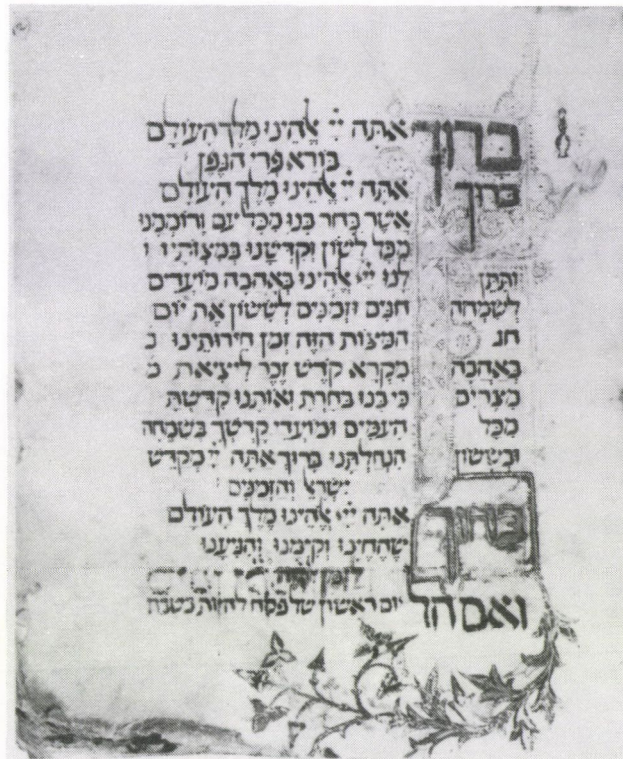 ברוך אַתָּה יְיָ אֱלֹהֵינוּ מֶלֶךְ הָעוֹלָם
בּוֹרֵא פְּרִי הַגָּפֶן
ברוך אַתָּה יְיָ אֱלֹהֵינוּ מֶלֶךְ הָעוֹלָם
אֲשֶׁר בָּחַר בָּנוּ מִכָּל עַם וְרוֹמְמָנוּ
מִכָּל לָשׁוֹן וְקִדְּשָׁנוּ בְּמִצְוֹתָיו ו
וַתִּתֵּן לָנוּ יְיָ אֱלֹהֵינוּ בְּאַהֲבָה מוֹעֲדִים
לְשִׂמְחָה חַגִּים וּזְמַנִּים לְשָׂשׂוֹן אֶת יוֹם
חג הַמַּצּוֹת הַזֶּה זְמַן חֵירוּתֵינוּ
בְּאַהֲבָה מִקְרָא קֹדֶשׁ זֵכֶר לִיצִיאַת מ
מִצְרַיִם כִּי בָנוּ בָחַרְתָּ וְאוֹתָנוּ קִדַּשְׁתָּ
מִכָּל הָעַמִּים וּמוֹעֲדֵי קָדְשְׁךָ בְּשִׂמְחָה
וּבְשָׂשׂוֹן הִנְחַלְתָּנוּ בָּרוּךְ אַתָּה יְיָ מְקַדֵּשׁ
יִשְׂרָאֵל וְהַזְּמַנִּים
ברוך אַתָּה יְיָ אֱלֹהֵינוּ מֶלֶךְ הָעוֹלָם
שֶׁהֶחֱיָנוּ וְקִיְּמָנוּ וְהִגִּיעָנוּ
לַזְּמַן הַזֶּה
ואם חל יום ראשון של פסח להיות בשבת